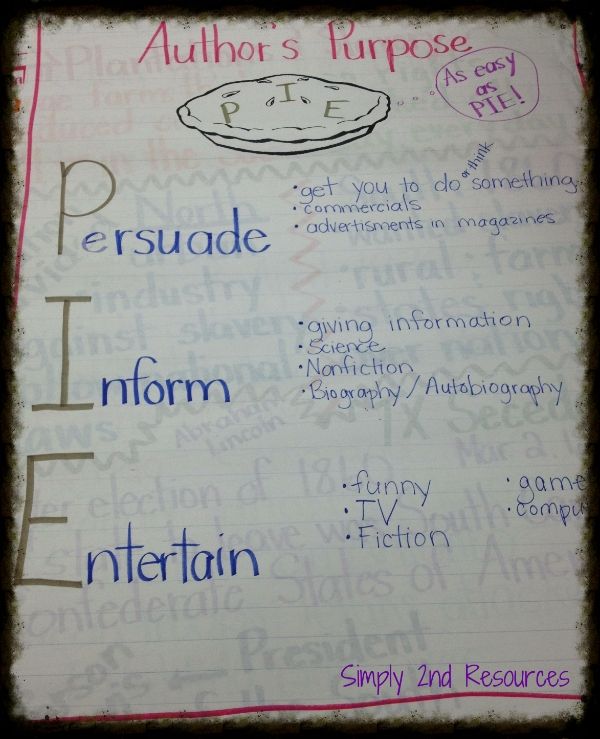 Author's Purpose
P I E
As easy
as
PIE!
Persuade
or think
• get you to do something
• commercials
• advertisments in magazines
Inform
• giving information
• Science
• Nonfiction
• Biography / Autobiography
Entertain
• funny
• TV
• Fiction
• game
Simply 2nd Resources